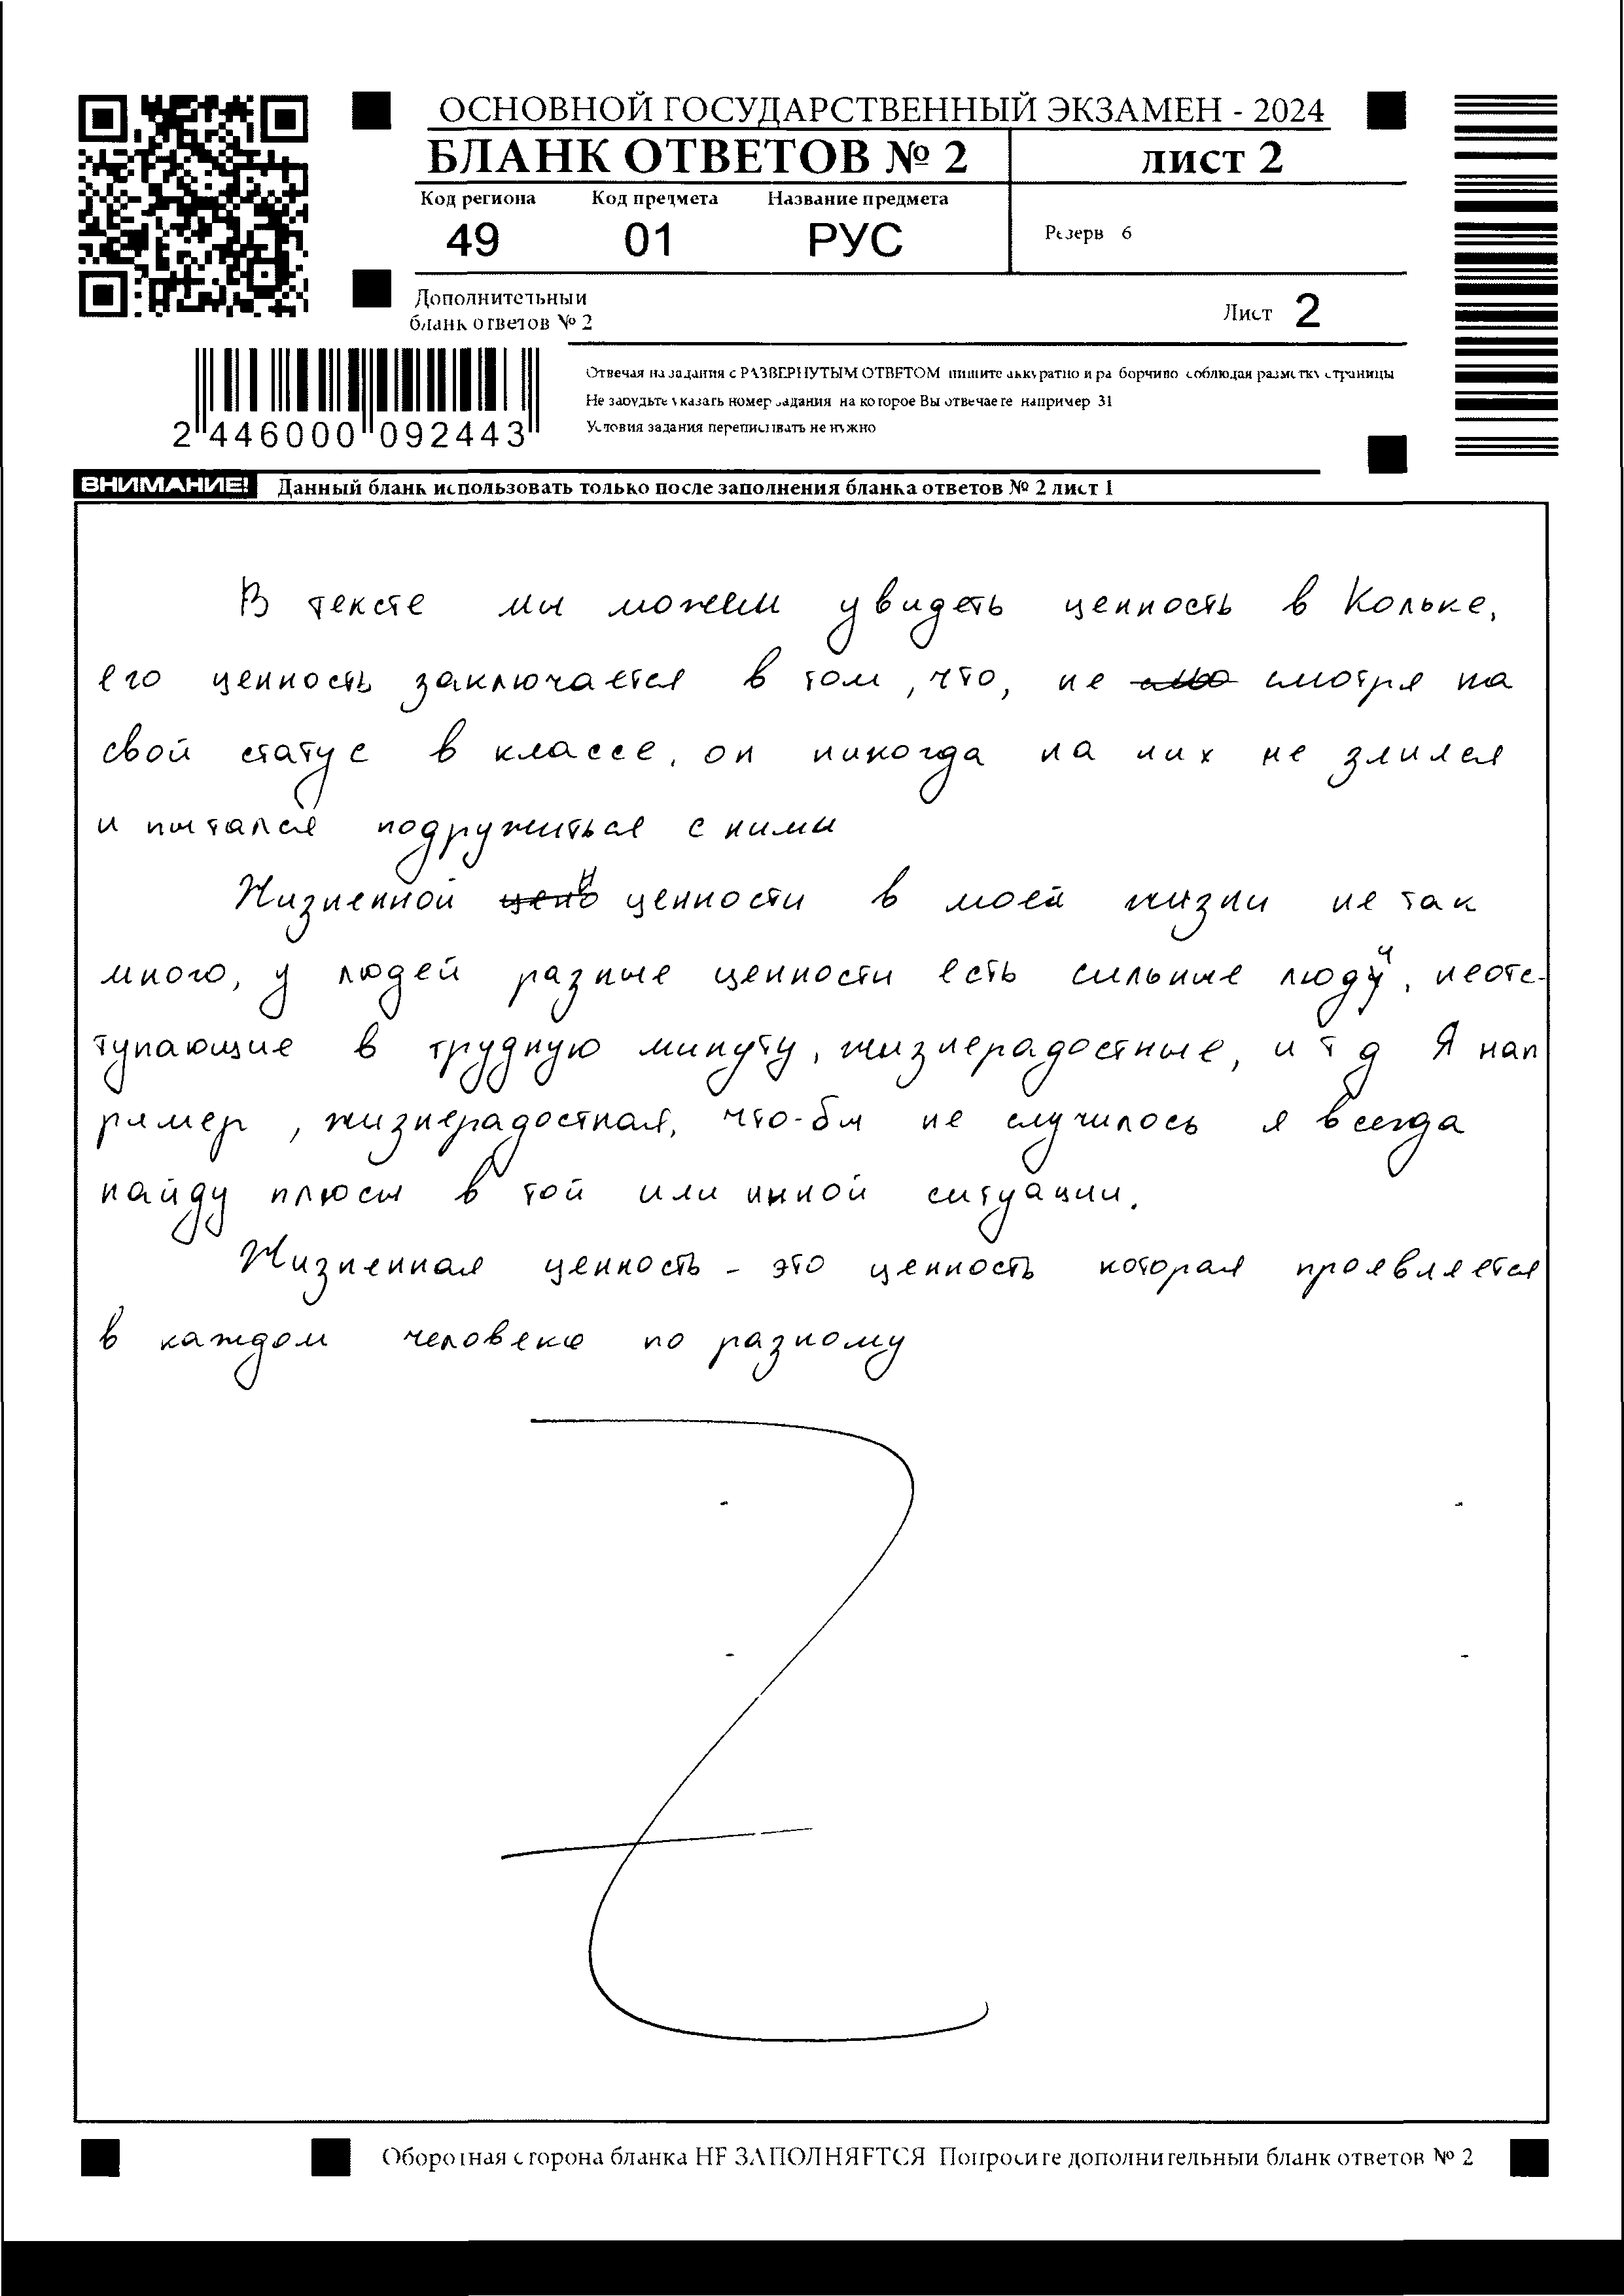 ОСНОВНОЙ ГОСУДАРСТВЕННЫЙ ЭКЗАМЕН - 2024
БЛАНК ОТВЕТОВ № 2
лист 2
Код региона Код предмета Название предмета
49 01 РУС
Резерв 6
Дополнительный
бланк ответов № 2
Лист 2
Отвечая на задания с РАЗВЕРНУТЫМ ОТВЕТОМ пишите аккуратно и разборчиво соблюдая разметку страницы
Не забудьте указать номер задания на которое Вы отвечаете например 31
Условия задания переписывать не нужно
2 446000 092443
ВНИМАНИЕ! Данный бланк использовать только после заполнения бланка ответов № 2 лист 1
В тексте мы можем увидеть ценность в Кольке,
его ценность заключается в том, что, не смотря на
свой статус в классе, он никогда на них не злился
и пытался подружиться с ними
Жизненной ценности в моей жизни не так
много, у людей разные ценности есть сильные люди, неотс-
тупающие в трудную минуту, жизнерадостные, и т д Я нап
ример, жизнерадостная, что-бы не случилось я всегда
найду плюсы в той или инной ситуации.
Жизненная ценность - это ценность которая проявляется
в каждом человеке по разному
Оборотная сторона бланка НЕ ЗАПОЛНЯЕТСЯ Попросите дополнительный бланк ответов № 2